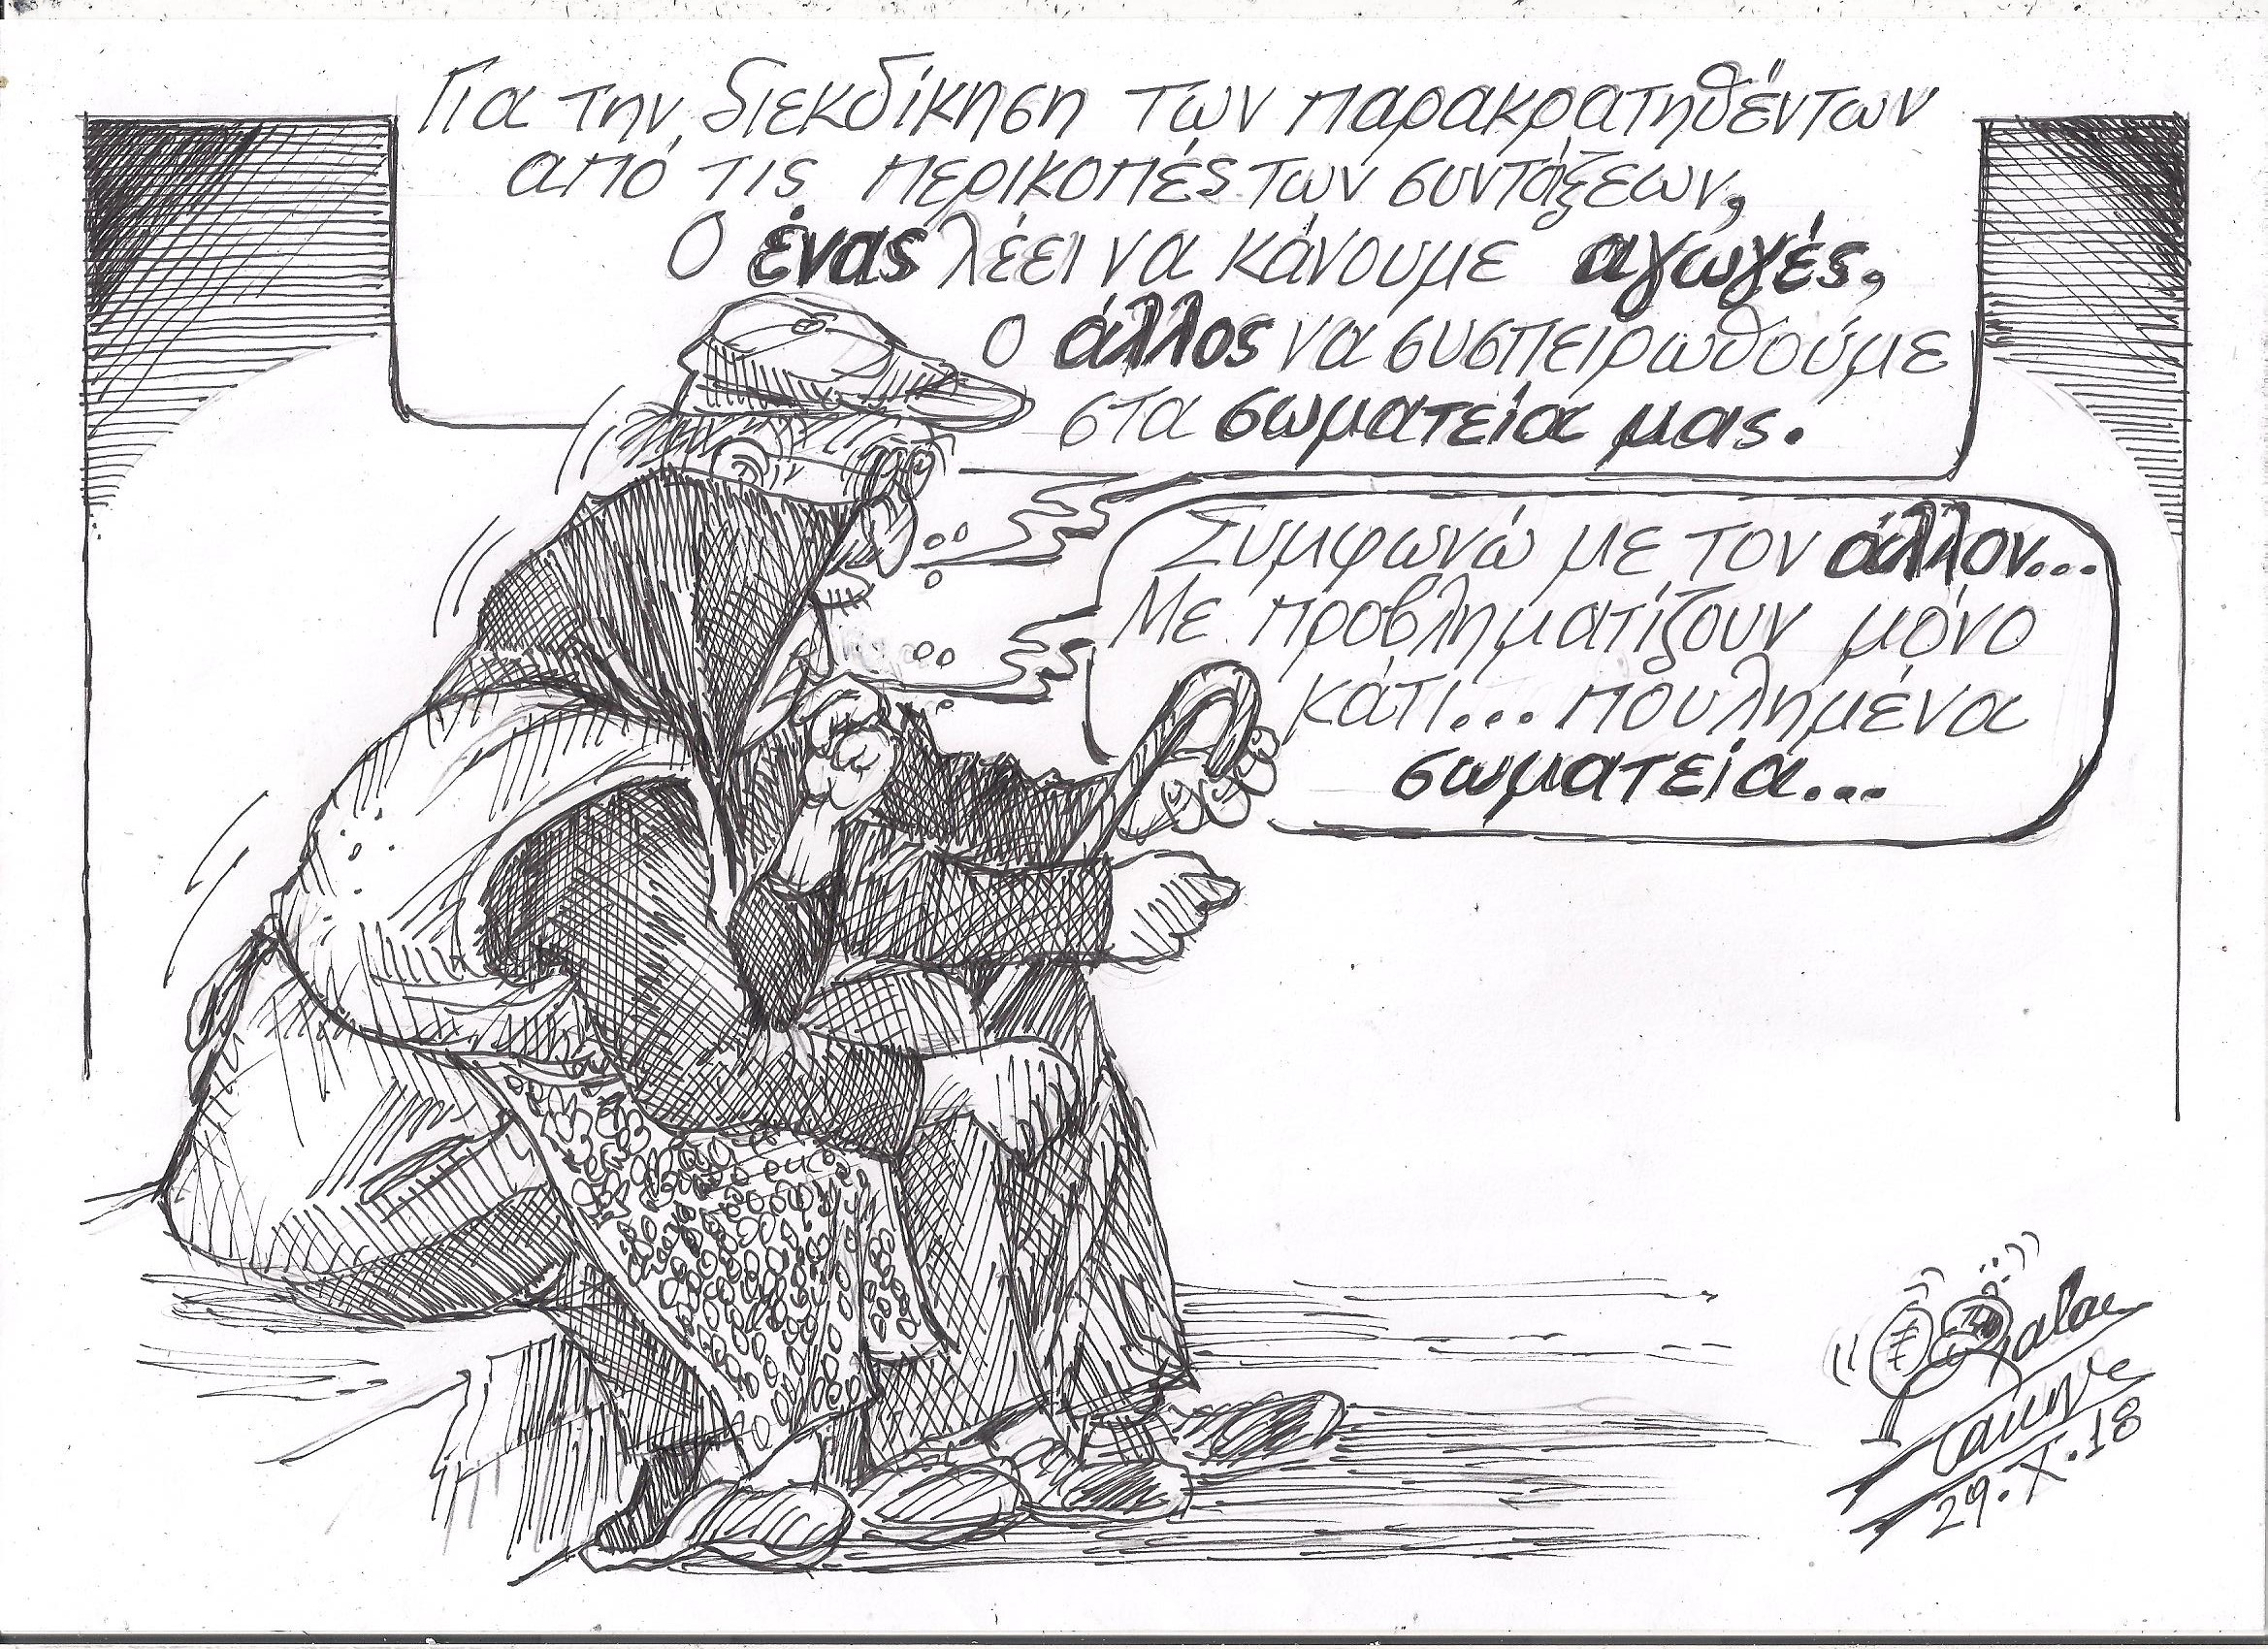 Για την διεκδίκηση των παρακρατηθέντων
από τις περικοπές των συντάξεων,
Ο ένας λέει να κάνουμε αγωγές,
ο άλλος να συσπειρωθούμε
στα σωματεία μας.
Συμφωνώ με τον άλλον...
Με προβληματίζουν μόνο
κάτι... πουλημένα
σωματεία...
29.X.18